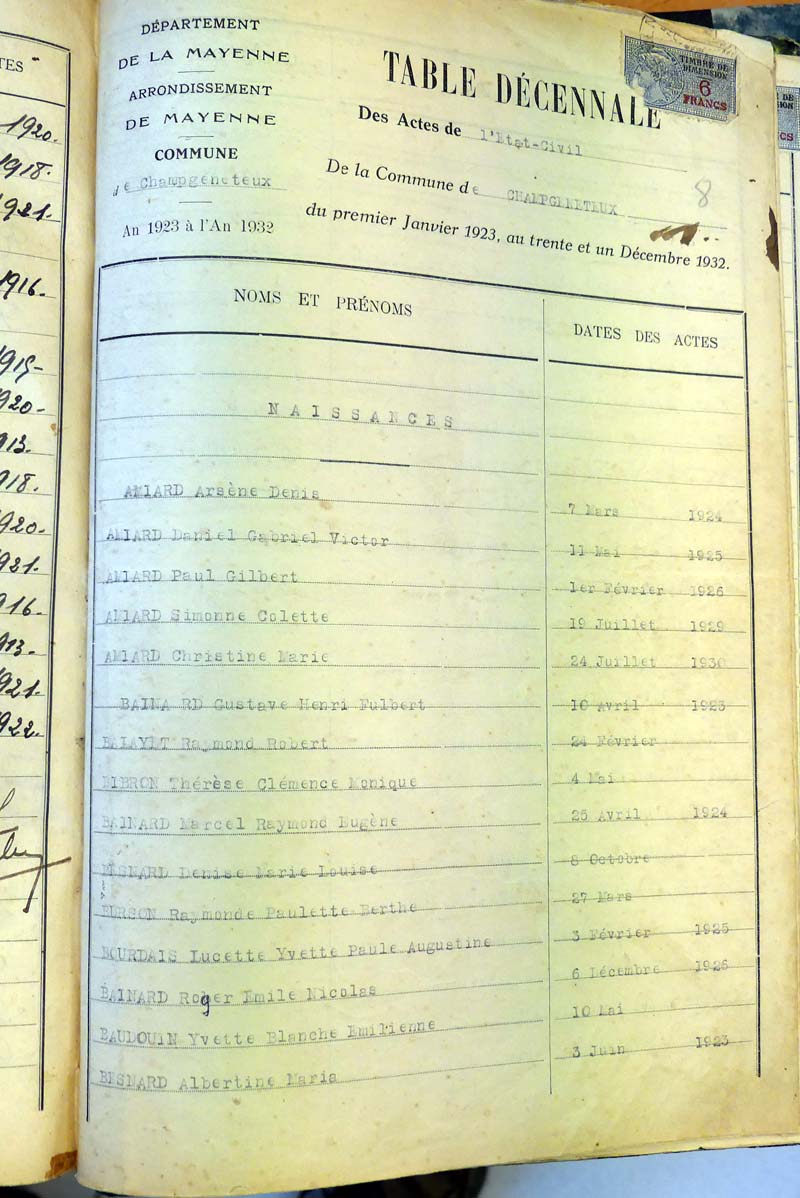 DÉPARTEMENT
DE LA MAYENNE
ARRONDISSEMENT
DE MAYENNE
COMMUNE
de Champgeneteux
An 1923 à l'An 1932
TIMBRE DE
DIMENSION
6
FRANCS
TABLE DÉCENNALE
Des Actes de l'Etat-Civil
De la Commune de CHAMPGENETEUX
8
du premier Janvier 1923, au trente et un Décembre 1932.
NOMS ET PRÉNOMS DATES DES ACTES
NAISSANCES
AMIARD Arsène Denis 7 Mars 1924
AMIARD Daniel Gabriel Victor 11 Mai 1925
AMIARD Paul Gilbert 1er Février 1926
AMIARD Simonne Colette 19 Juillet 1929
AMIARD Christine Marie 24 Juillet 1930
BAINA RD Gustave Henri Fulbert 10 Avril 1923
Raymond Robert 24 Février
BIBRON Thérèse Clémence Monique 4 Mai
BAINARD Marcel Raymond Eugène 25 Avril 1924
BESNARD Denise Marie Louise 8 Octobre
BURSON Raymonde Paulette Berthe 27 Mars
BOURDAIS Lucette Yvette Paule Augustine 3 Février 1925
BAINARD Roger Emile Nicolas 6 Décembre 1926
BAUDOUIN Yvette Blanche Emilienne 10 Mai
BESNARD Albertine Maria 3 Juin 1923
TES
1920.
1918.
1921.
1916.
1915
1920
1913.
1918.
1920
1921.
1916.
1913.
1921.
1922.